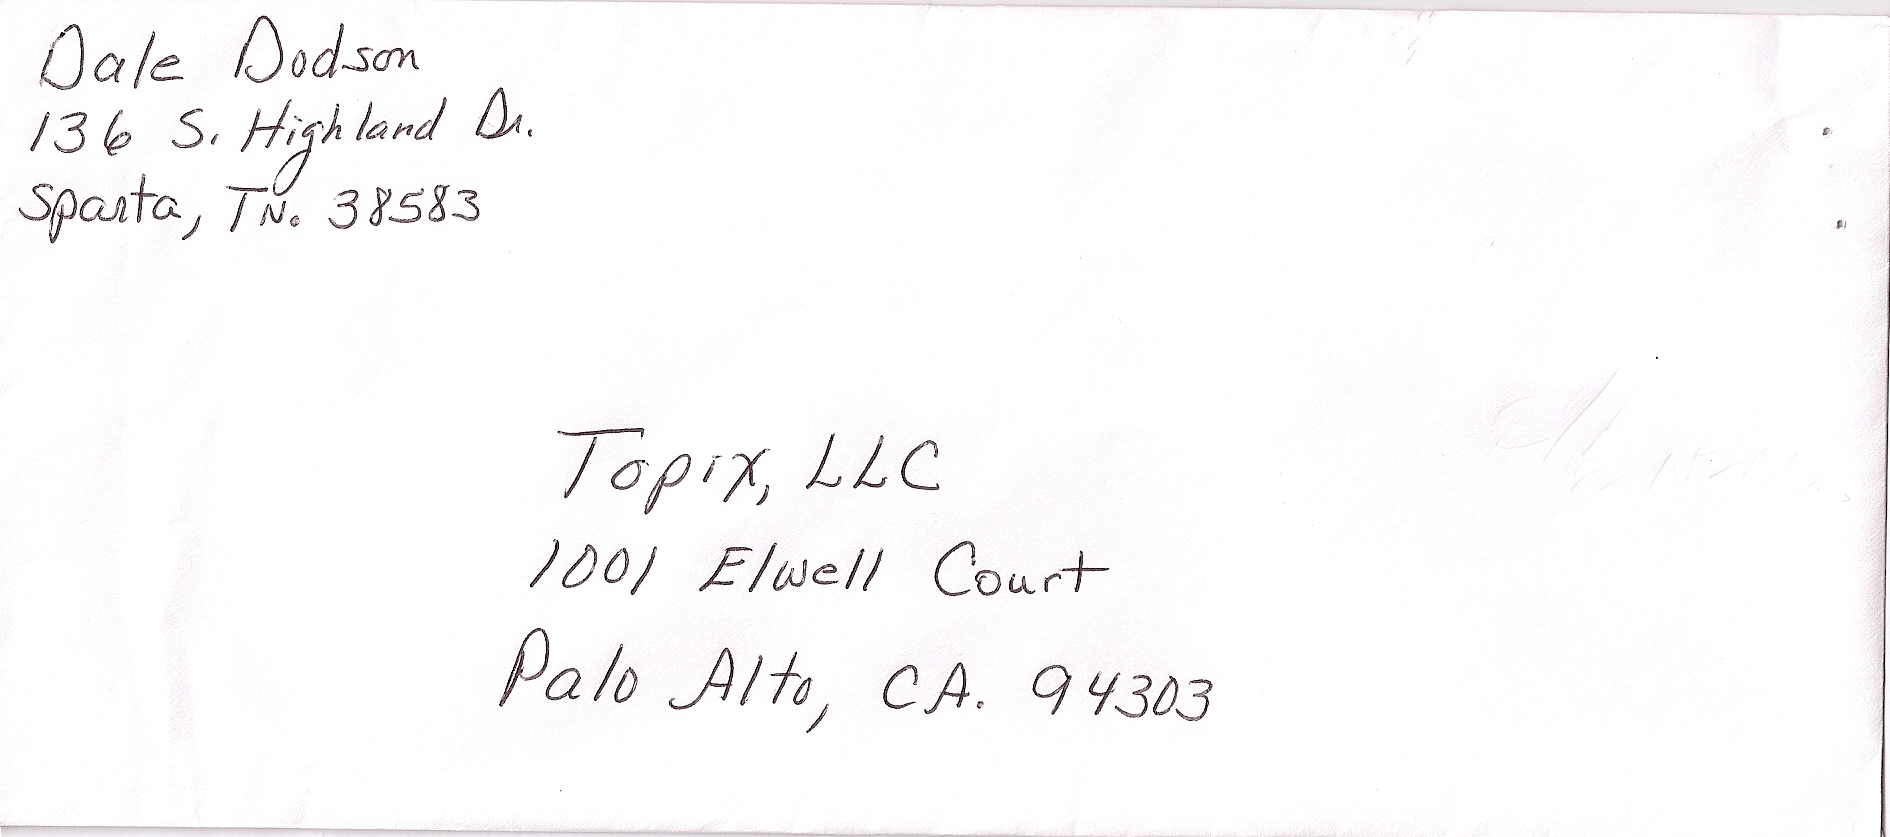 Dale Dodson
136 S. Highland Dr.
Sparta, TN. 38583
Topix, LLC
1001 Elwell Court
Palo Alto, CA. 94303